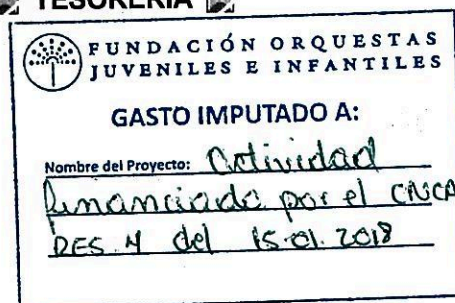 TESORERIA
FUNDACIÓN ORQUESTAS
JUVENILES E INFANTILES
GASTO IMPUTADO A:
Nombre del Proyecto: Actividad
financiada por el CNCA
RES. 4 del 15.01.2018